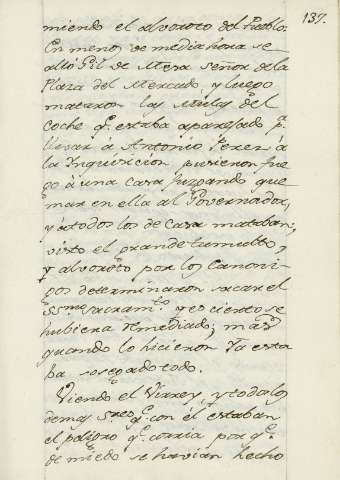 137.
miendo el alvoroto del Pueblo.
En menos de media hora se
alló Gil de Mesa señor de la
Plaza del Mercado, y luego
mataron las Mulas del
coche q.e estaba aparejado p.a
llevar a Antonio Perez à
la Inquisicion pusieron fue
go à una casa juzgando que
mar en ella al Governador,
y à todos los de casa mataban;
visto el grande tumulto,
y alvoroto por los Canoni-
gos determinaron sacar el
SSmo sacram.to y es cierto se
hubiera remediado; mas
quando lo hicieron Ya esta
ba sosegado todo.
Viendo el Virrey, y todos los
demas S.res q.e con él estaban
el peligro q.e corria por q.e
de miedo se havian hecho